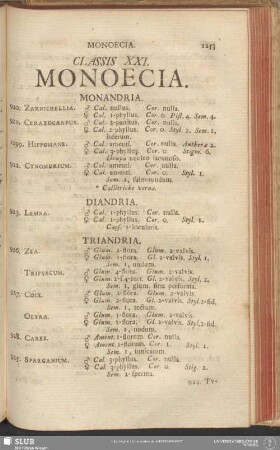 MONOECIA. 1253
CLASSIS XXI.
MONOECIA.
MONANDRIA.
920. ZANNICHELLIA. ♂ Cal. nullus. Cor. nulla.
♀ Cal. 1-phyllus. Cor. 0. Pist. 4. Sem. 4.
921. CERATOCARPUS. ♂ Cal. 2-partitus. Cor. nulla.
♀ Cal. 2-phyllus. Cor. 0. Styl. 2. Sem. 1,
inferum.
1099. HIPPOMANE. ♂ Cal. amenti. Cor. nulla. Antheræ 2.
♀ Cal. 3-phyllus. Cor. 0. Stigm. 6.
Drupa nucleo lacunoso.
922. CYNOMORIUM. ♂ Cal. amenti. Cor. nulla.
♀ Cal. amenti. Cor. 0. Styl. 1.
Sem. 1, subrotundum.
* Callitriche verna.
DIANDRIA.
923. LEMNA. ♂ Cal. 1-phyllus. Cor. nulla.
♀ Cal. 1-phyllus. Cor. 0. Styl. 1.
Caps. 1-locularis.
TRIANDRIA.
926. ZEA. ♂ Glum. 2-flora. Glum. 2-valvis.
♀ Glum. 1-flora. Gl. 2-valvis. Styl. 1.
Sem. 1, nudum.
TRIPSACUM. ♂ Glum. 4-flora. Glum. 2-valvis.
Sem. 1, glum. sinu perforata.
927. COIX. ♂ Glum. 2-flora. Glum. 2-valvis.
♀ Glum. 2-flora. Gl. 2-valvis. Styl. 2-fid.
Sem. 1, tectum.
OLYRA. ♂ Glum. 1-flora. Glum. 2-valvis.
♀ Glum. 1-flora. Gl. 2-valvis. Styl. 2-fid.
Sem. 1, nudum.
928. CAREX. ♂ Ament. 1-florum. Cor. nulla.
♀ Ament. 1-florum. Cor. 1. Styl. 1.
Sem. 1, tunicatum.
925. SPARGANIUM. ♂ Cal. 3-phyllus. Cor. nulla.
♀ Cal. 3-phyllus. Cor. 0. Stig. 2.
Sem. 2-sperma.
924. TY-
SLUB